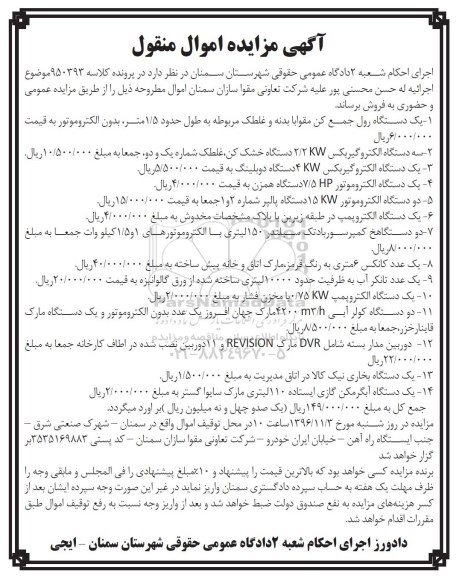 آگهی مزایده اموال منقول
اجرای احکام شعبه ۲دادگاه عمومی حقوقی شهرستان سمنان در نظر دارد در پرونده کلاسه ۹۵۰۳۹۳موضوع
اجرائیه له حسن محسنی پور علیه شرکت تعاونی مقوا سازان سمنان اموال مطروحه ذیل را از طریق مزایده عمومی
و حضوری به فروش برساند.
۱-یک دستگاه رول جمع کن مقوابا بدنه و غلطک مربوطه به طول حدود ۱/۵متر، بدون الکتروموتور به قیمت
۶/۰۰۰/۰۰۰ریال
۲-سه دستگاه الکتروگیربکس ۲/۲ KW دستگاه خشک کن،غلطک شماره یک و دو، جمعابه مبلغ ۱۰/۵۰۰/۰۰۰ریال.
۳- یک دستگاه الکتروگیربکس ۴ KW دستگاه دوبلینگ به قیمت ۵/۵۰۰/۰۰۰ریال.
۴- یک دستگاه الکتروموتور ۷/۵ HP دستگاه همزن به قیمت ۴/۰۰۰/۰۰۰ریال.
۵- دو دستگاه الکتروموتور ۱۵ KW دستگاه پالپر شماره ۲و۱جمعا به قیمت ۱۵/۰۰۰/۰۰۰ریال
۶- یک دستگاه الکتروپمپ در طبقه زیرین با پلاک مشخصات مخدوش به مبلغ ۴/۰۰۰/۰۰۰ریال.
۷-دو دستگاهخ کمپرسورباتک سیلندر ۱۵۰لیتری با الکتروموتورهای ۱و۱/۵کیلو وات جمعا به مبلغ
۸/۰۰۰/۰۰۰ریال.
۸- یک عدد کانکس ۶متری به رنگ قرمز،مارک اتاق و خانه پیش ساخته به مبلغ ۴۰/۰۰۰/۰۰۰ریال.
۹- یک عدد تانکر آب به ظرفیت حدود ۱۰۰۰۰لیتری ساخته شده از ورق گالوانیزه به قیمت ۲۰/۰۰۰/۰۰۰ریال.
۱۰- یک دستگاه الکتروپمپ ۰/۷۵ KW با مخزن فشار به مبلغ ۲/۰۰۰/۰۰۰ریال
۱۱- دو دستگاه کولر آبی ۴۲۰۰ m۳/h مارک جهان افروز یک عدد بدون الکتروموتور و یک دستگاه مارک
قاینارخزر،جمعا به مبلغ ۸/۵۰۰/۰۰۰ریال.
۱۲- دوربین مدار بسته شامل DVR مارک REVISION و ۱۱دوربین نصب شده در اطاف کارخانه جمعا به مبلغ
۲۲/۰۰۰/۰۰۰ریال
۱۳- یک دستگاه بخاری نیک کالا در اتاق مدیریت به مبلغ ۱/۵۰۰/۰۰۰ریال.
۱۴- یک دستگاه آبگرمکن گازی ایستاده ۱۱۰لیتری مارک سایوا گستر به مبلغ ۲/۰۰۰/۰۰۰ریال
جمع کل به مبلغ ۱۴۹/۰۰۰/۰۰۰ریال (یک صدو چهل و نه میلیون ریال )بر اورد میگردد.
مزایده در روز شنبه مورخ ۱۳۹۶/۱۱/۳ساعت ۱۰در محل توقیف اموال واقع در سمنان – شهرک صنعتی شرق –
جنب ایستگاه راه آهن – خیابان ایران خودرو – شرکت تعاونی مقوا سازان سمنان – کد پستی ۳۵۳۵۱۶۹۸۸۳بر
گزار خواهد شد
برنده مزایده کسی خواهد بود که بالاترین قیمت را پیشنهاد و ۱۰٪مبلغ پیشنهادی را فی المجلس و مابقی وجه را
ظرف مهلت یک هفته به حساب سپرده دادگستری سمنان واریز نماید در غیر این صورت وجه سپرده ایشان بعد از
کسر هزینه‌های مزایده به نفع صندوق دولت ضبط خواهد شد و بعد از واریز وجه نسبت به رفع توقیف اموال طبق
مقررات اقدام خواهد شد.
دادورز اجرای احکام شعبه ۲دادگاه عمومی حقوقی شهرستان سمنان – ایجی
ParsNamadData
۰۲۱-۸۸۳۴۹۶۷۰-۵